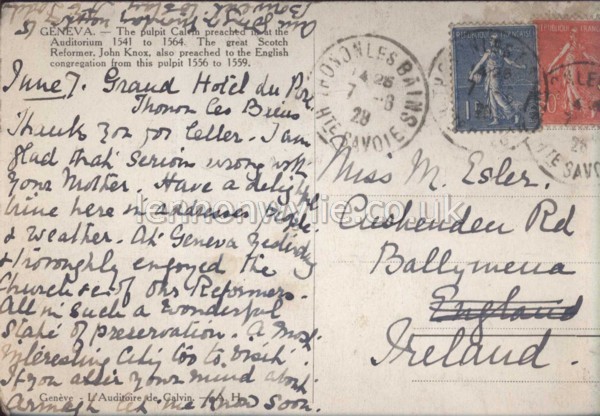 GENEVA. — The pulpit Calvin preached in at the
Auditorium 1541 to 1564. The great Scotch
Reformer, John Knox, also preached to the English
congregation from this pulpit 1556 to 1559.
June 7. Grand Hotel du Parc
Thonon les Bains
Thank you for letter. I am
glad that serious wrong with
your Mother. Have a delight
time here in addresses people
& weather. At Geneva yesterday
& thoroughly enjoyed the
Church &c of our Reformers.
All in such a wonderful
state of preservation. A most
interesting City too to visit.
If you alter your mind about
Armagh let me know soon.
Genève - L'Auditoire de Calvin. - A. H.
THONON LES BAINS
7 - 6
28
HTE SAVOIE
Miss M. Esler.
Cushenden Rd
Ballymena
England
Ireland.
lennonwylie.co.uk